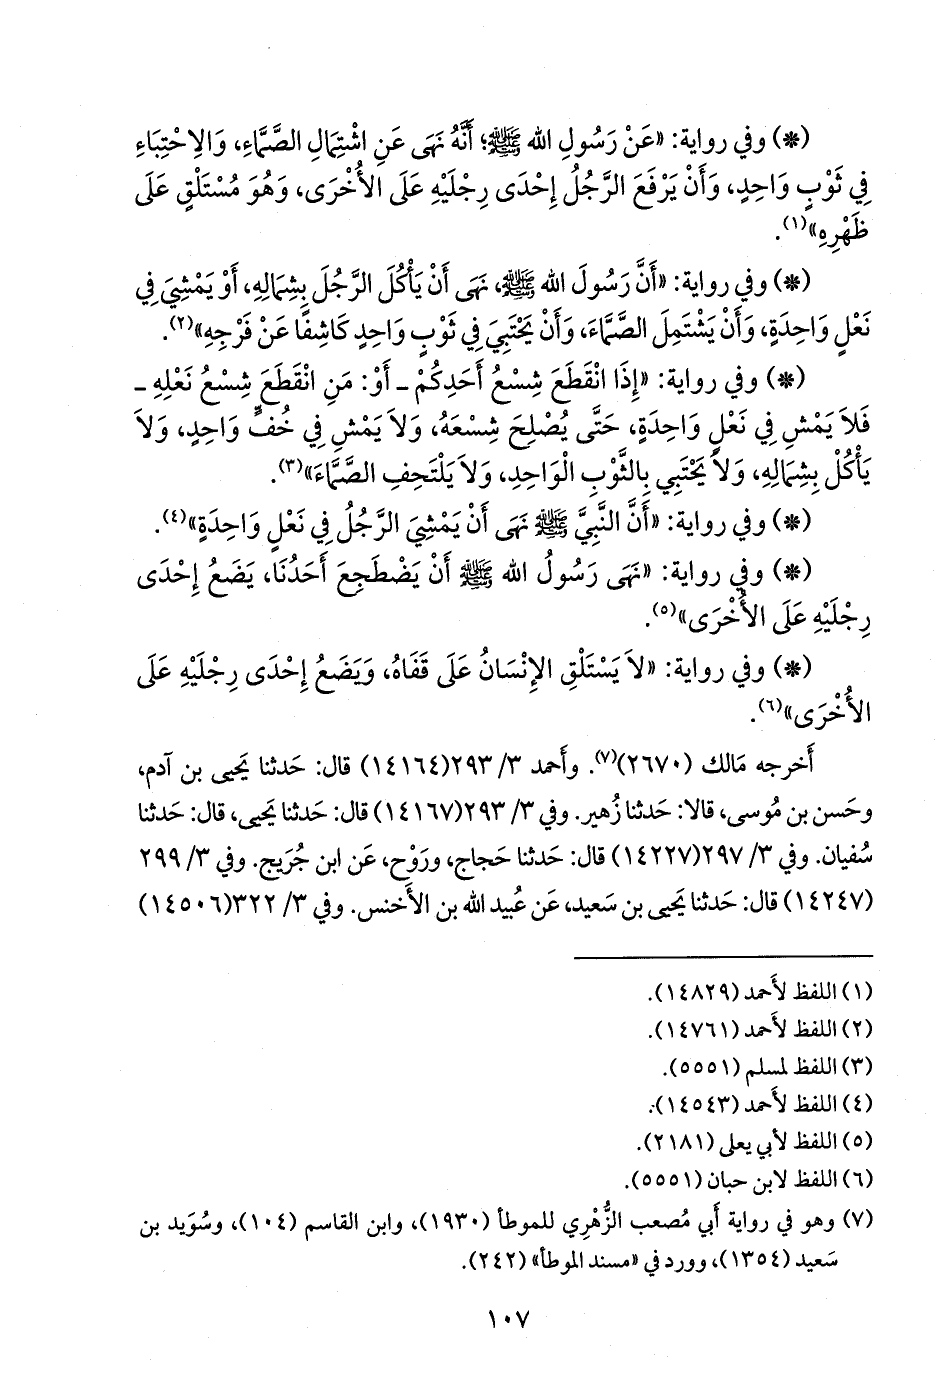 (*) وفي رواية: «عَنْ رَسُولِ الله ﷺ؛ أَنَّهُ نَهَى عَنِ اشْتِمَالِ الصَّمَّاءِ، وَالاِحْتِبَاءِ
فِي ثَوْبٍ وَاحِدٍ، وَأَنْ يَرْفَعَ الرَّجُلُ إِحْدَى رِجْلَيْهِ عَلَى الأُخْرَى، وَهُوَ مُسْتَلْقٍ عَلَى
ظَهْرِهِ»(١).
(*) وفي رواية: «أَنَّ رَسُولَ الله ﷺ، نَهَى أَنْ يَأْكُلَ الرَّجُلُ بِشِمَالِهِ، أَوْ يَمْشِيَ فِي
نَعْلٍ وَاحِدَةٍ، وَأَنْ يَشْتَمِلَ الصَّمَّاءَ، وَأَنْ يَحْتَبِيَ فِي ثَوْبٍ وَاحِدٍ كَاشِفًا عَنْ فَرْجِهِ»(٢).
(*) وفي رواية: «إِذَا انْقَطَعَ شِسْعُ أَحَدِكُمْ ـ أَوْ: مَنِ انْقَطَعَ شِسْعُ نَعْلِهِ ـ
فَلاَ يَمْشِ فِي نَعْلٍ وَاحِدَةٍ، حَتَّى يُصْلِحَ شِسْعَهُ، وَلاَ يَمْشِ فِي خُفٍّ وَاحِدٍ، وَلاَ
يَأْكُلْ بِشِمَالِهِ، وَلاَ يَحْتَبِي بِالثَّوْبِ الْوَاحِدِ، وَلاَ يَلْتَحِفِ الصَّمَّاءَ»(٣).
(*) وفي رواية: «أَنَّ النَّبِيَّ ﷺ نَهَى أَنْ يَمْشِيَ الرَّجُلُ فِي نَعْلٍ وَاحِدَةٍ»(٤).
(*) وفي رواية: «نَهَى رَسُولُ الله ﷺ أَنْ يَضْطَجِعَ أَحَدُنَا، يَضَعُ إِحْدَى
رِجْلَيْهِ عَلَى الأُخْرَى»(٥).
(*) وفي رواية: «لاَ يَسْتَلْقِ الإِنْسَانُ عَلَى قَفَاهُ، وَيَضَعُ إِحْدَى رِجْلَيْهِ عَلَى
الأُخْرَى»(٦).
أَخرجه مَالك (٢٦٧٠)(٧). وأَحمد ٣/ ٢٩٣(١٤١٦٤) قال: حَدثنا يَحيى بن آدم،
وحَسن بن مُوسى، قالا: حَدثنا زُهير. وفي ٣/ ٢٩٣(١٤١٦٧) قال: حَدثنا يَحيى، قال: حَدثنا
سُفيان. وفي ٣/ ٢٩٧(١٤٢٢٧) قال: حَدثنا حَجاج، ورَوْح، عَن ابن جُريج. وفي ٣/ ٢٩٩
(١٤٢٤٧) قال: حَدثنا يَحيى بن سَعيد، عَن عُبيد الله بن الأَخنس. وفي ٣/ ٣٢٢(١٤٥٠٦)
(١) اللفظ لأَحمد (١٤٨٢٩).
(٢) اللفظ لأَحمد (١٤٧٦١).
(٣) اللفظ لمسلم (٥٥٥١).
(٤) اللفظ لأَحمد (١٤٥٤٣).
(٥) اللفظ لأَبي يعلى (٢١٨١).
(٦) اللفظ لابن حبان (٥٥٥١).
(٧) وهو في رواية أَبي مُصعب الزُّهْري للموطأ (١٩٣٠)، وابن القاسم (١٠٤)، وسُوَيد بن
سَعيد (١٣٥٤)، وورد في «مسند الموطأ» (٢٤٢).
١٠٧